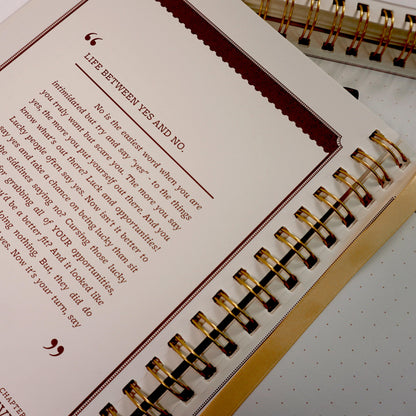 “
LIFE BETWEEN YES AND NO.
No is the easiest word when you are
Intimidated but try and say "yes" - to the things
you truly want but scare you. The more you say
yes, the more you put yourself out there. And you
know what's out there? Luck and opportunities!
Lucky people often say yes. Now isn't it better to
say yes and take a chance on being lucky than sit
the sidelines saying no? Cursing those lucky
for grabbing all of YOUR opportunities,
be a better fit? and it looked like
doing nothing. But, they did do
yes. Now it's your turn, say
”
CHAPTER